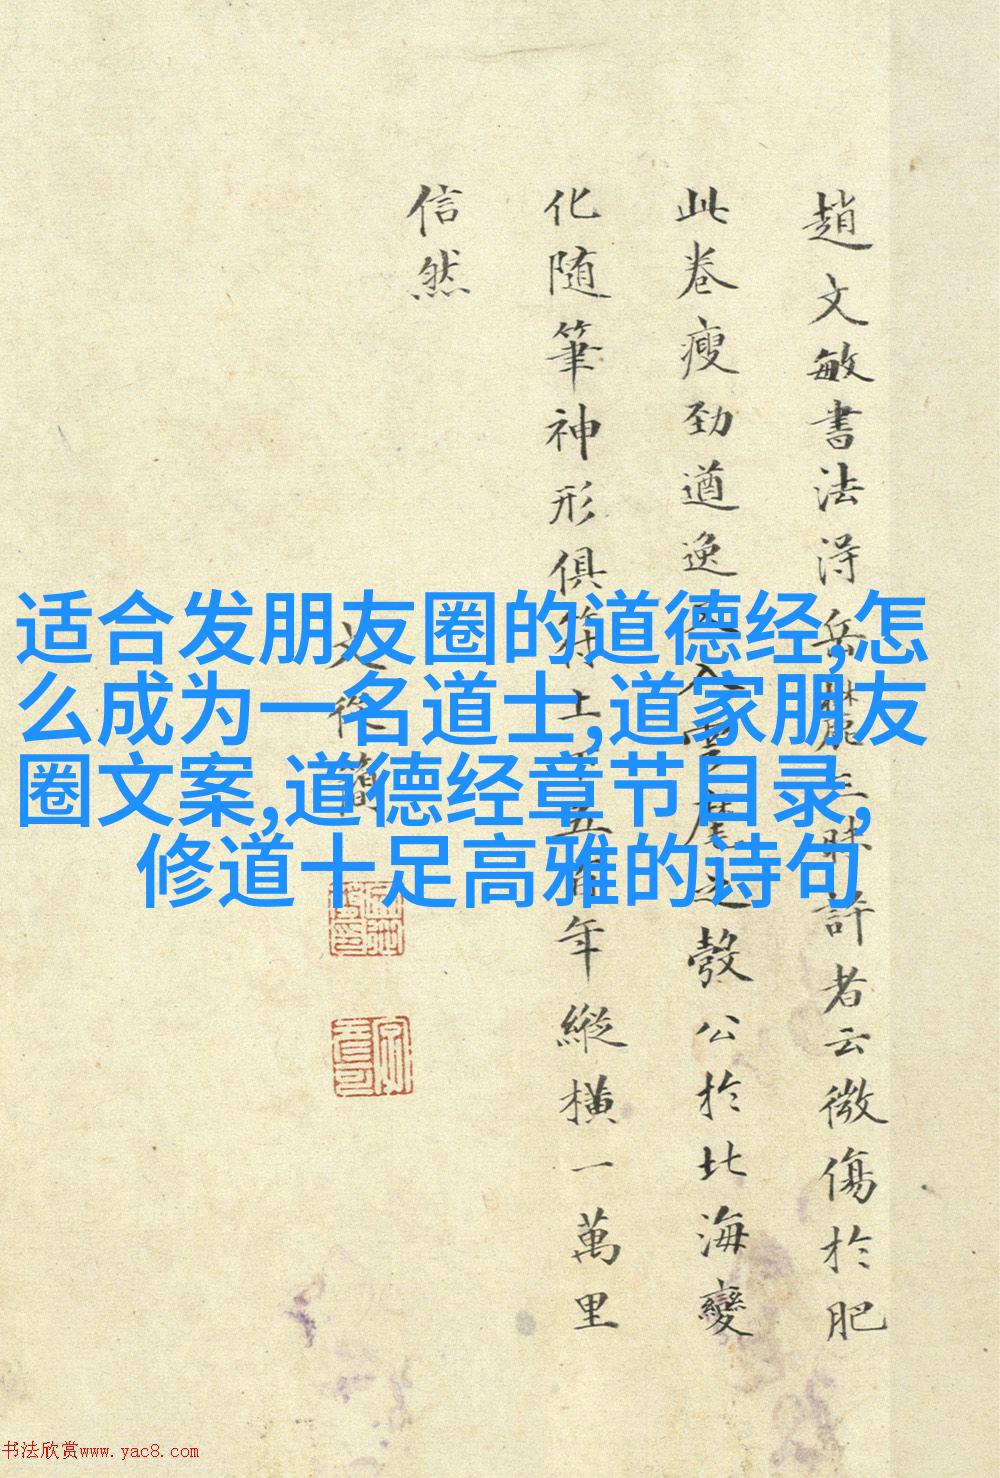 适合发朋友圈的道德经,怎
么成为一名道士,道家朋友
圈文案,道德经章节目录,
修道十足高雅的诗句
趙文敏書法淂岳麓三昧評者云微傷於肥
此卷瘦劲遒逸入雲麾之彀公於北海變
化随筆神形俱符上下五百年縱橫一萬里
信然
书法欣赏www.yac8.com